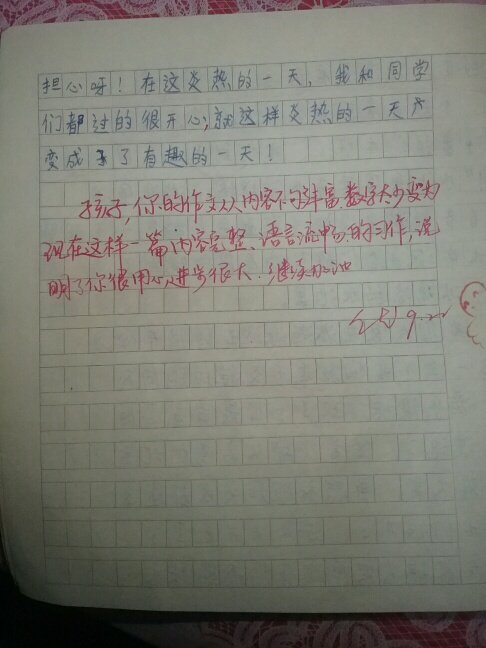 担心呀！在这炎热的一天，我和同学
们都过的很开心；就这样炎热的一天
变成了有趣的一天！
孩子，你的作文从内容不够丰富、数字太少变为
现在这样一篇内容完整、语言流畅的习作，说
明了你很用心，进步很大.继续加油
9.22